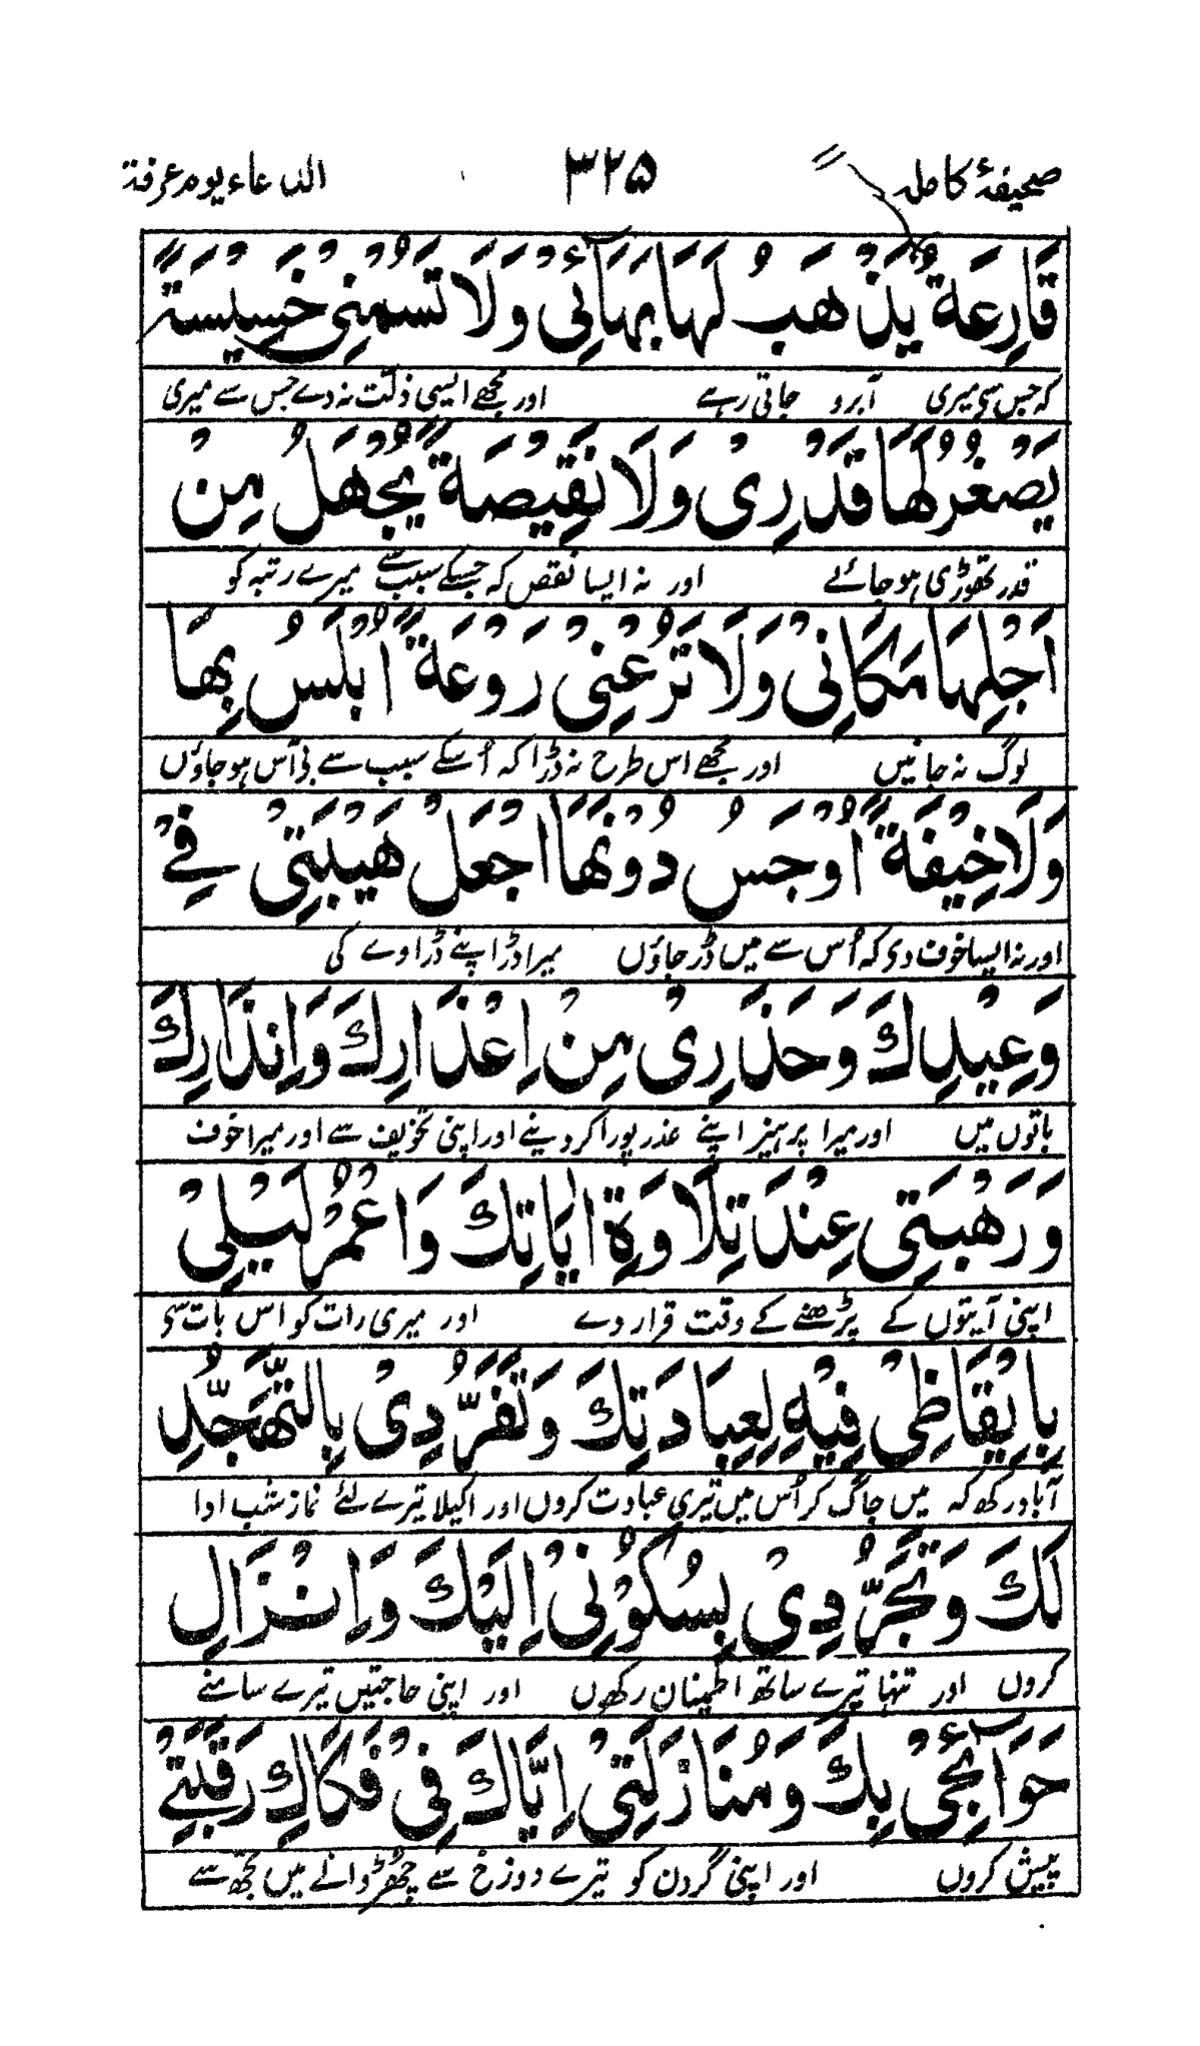 صحیفۂ کاملہ ۳۲۵ الدعاء یوم عرفۃ
قَارِعَةً يَذْهَبُ لَهَا بَهَآئِىْ وَلَا تَسُمْنِىْ خَسِيْسَةً
کہ جس سی میری آبرو جاتی رہے اور مجھے ایسی ذلّت نہ دے جس سے میری
يَصْغُرُ لَهَا قَدْرِىْ وَلَا نَقِيْصَةً يُجْهَلُ مِنْ
قدر تھوڑی ہو جائے اور نہ ایسا نقص کہ جسکے سبب سے میرے رتبہ کو
اَجْلِهَا مَكَانِىْ وَلَا تَرُعْنِىْ رَوْعَةً اُبْلَسُ بِهَا
لوگ نہ جانیں اور مجھے اس طرح نہ ڈرا کہ اُسکے سبب سے بی آس ہو جاؤں
وَلَا خِيْفَةً اُوْجَسُ دُوْنَهَا اجْعَلْ هَيْبَتِىْ فِىْ
اور نہ ایسا خوف دی کہ اُس سے میں ڈر جاؤں میرا ڈر اپنے ڈراوے کی
وَعِيْدِكَ وَحَذَرِىْ مِنْ اِعْذَارِكَ وَاِنْذَارِكَ
باتوں میں اور میرا پرہیز اپنے عذر پورا کردینے اور اپنی تخویف سے اور میرا خوف
وَرَهْبَتِى عِنْدَ تِلَاوَةِ اٰيَاتِكَ وَاعْمُرْ لَيْلِىْ
اپنی آیتوں کے پڑھنے کے وقت قرار دے اور میری رات کو اس بات سی
بِاِيْقَاظِىْ فِيْهِ لِعِبَادَتِكَ وَتَفَرُّدِىْ بِالتَّهَجُّدِ
آباد رکھ کہ میں جاگ کر اُس میں تیری عبادت کروں اور اکیلا تیرے لئے نماز شب ادا
لَكَ وَتَجَرُّدِىْ بِسُكُوْنِىْ اِلَيْكَ وَاِنْزَالِ
کروں اور تنہا تیرے ساتھ اطمینان رکھوں اور اپنی حاجتیں تیرے سامنے
حَوَآئِجِىْ بِكَ وَمُنَازَلَتِىْ اِيَّاكَ فِىْ فَكَاكِ رَقَبَتِىْ
پیش کروں اور اپنی گردن کو تیرے دوزخ سے چھڑڈالنے میں تجھ سے